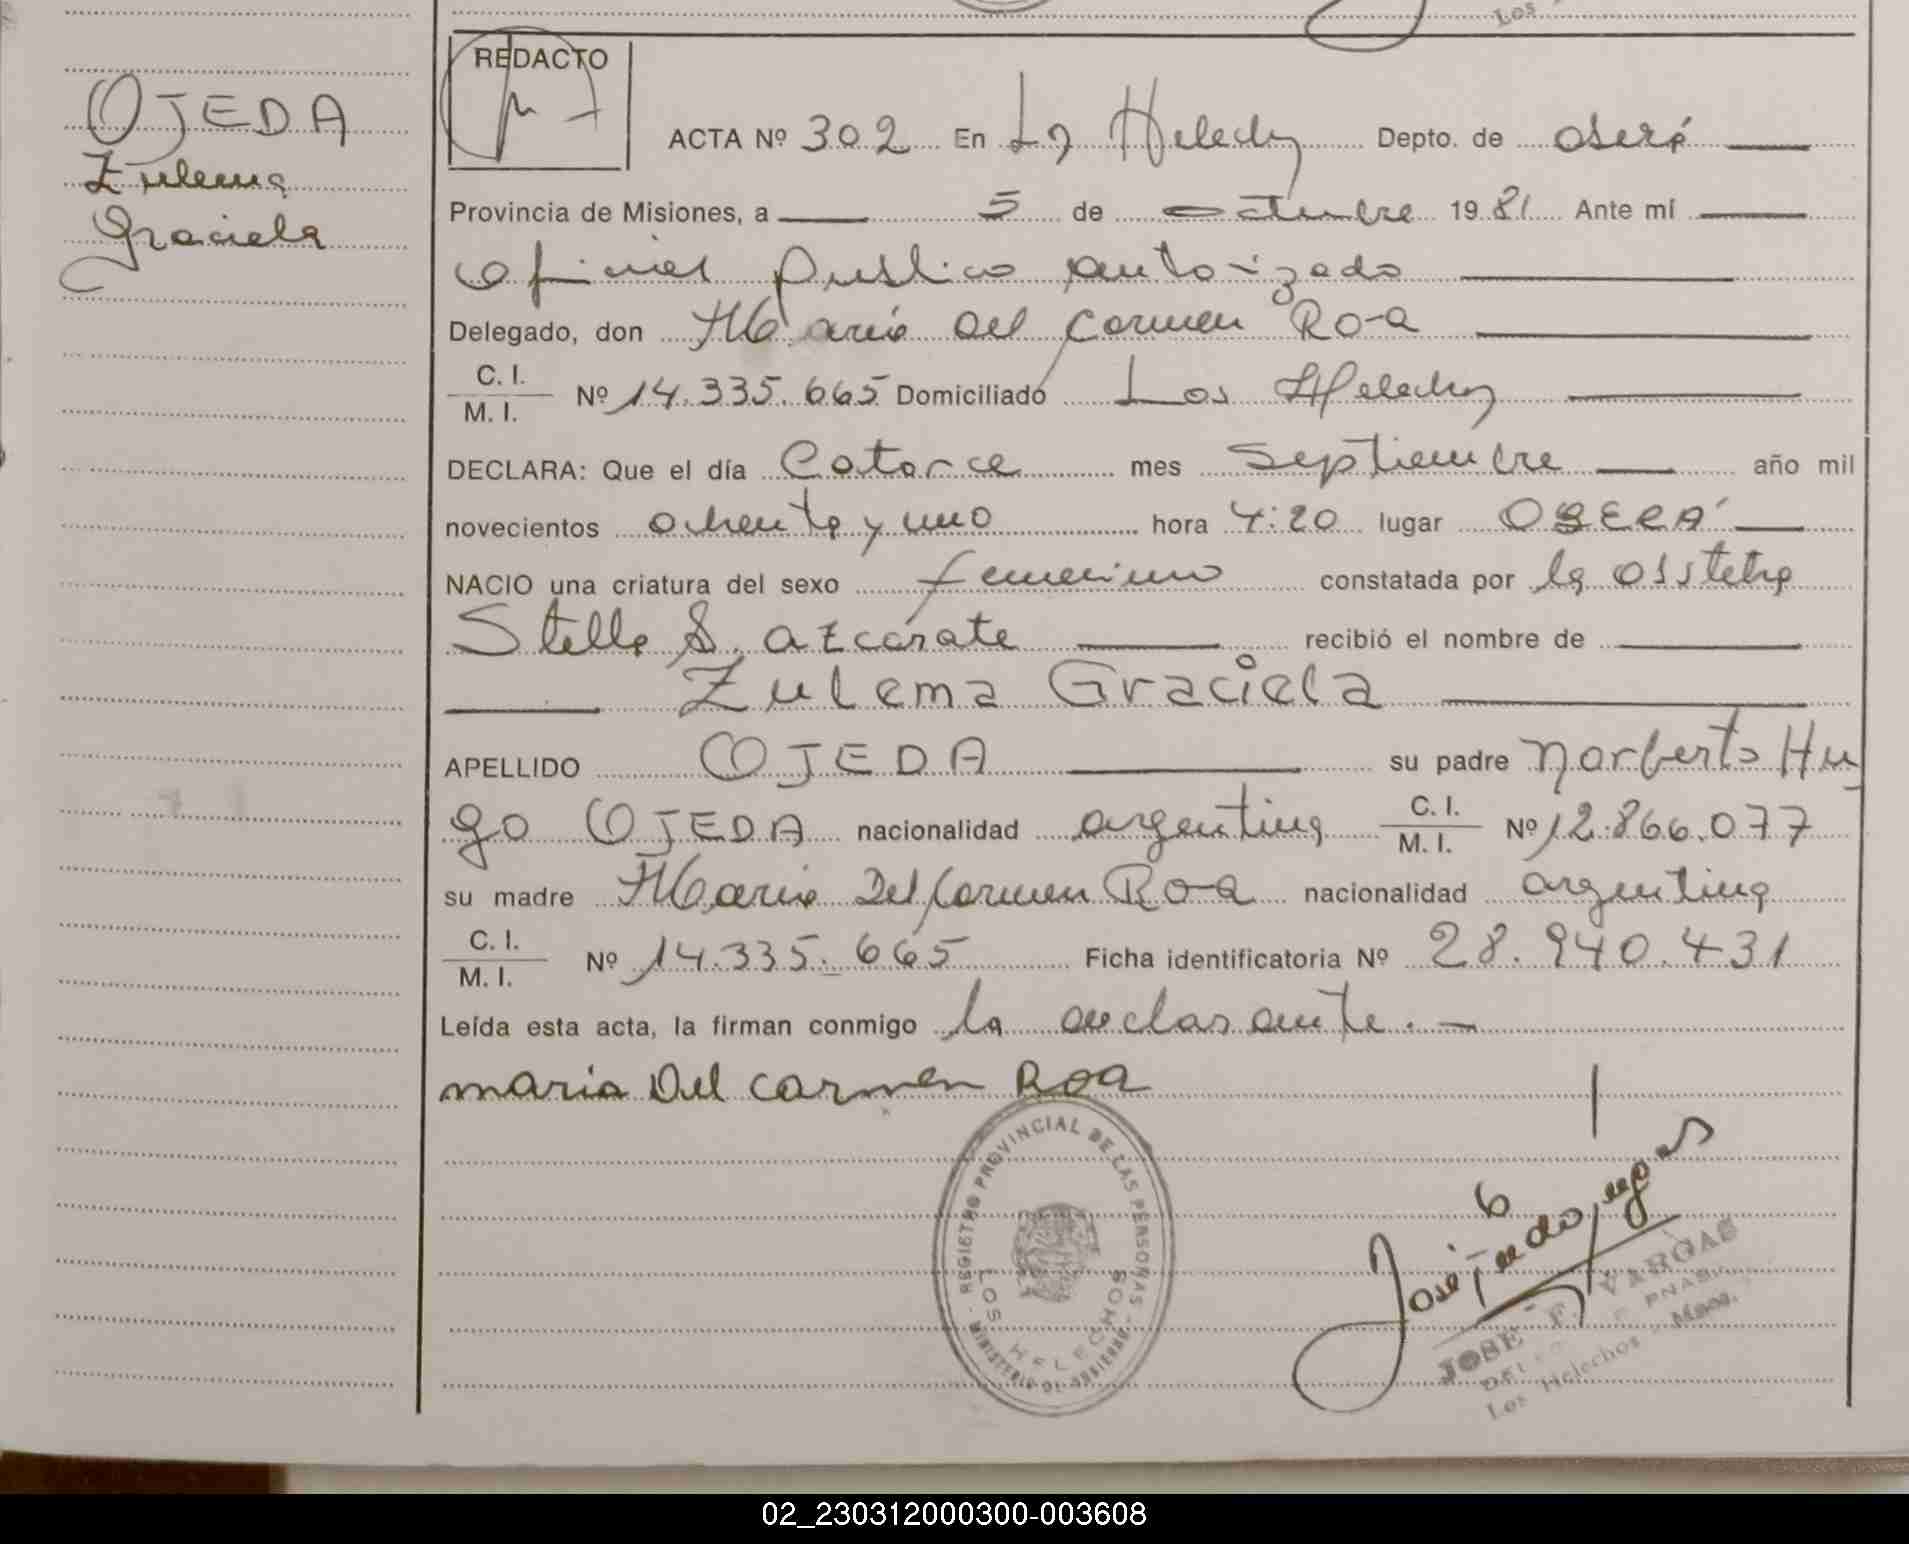 Los
REDACTO
OJEDA
Zulema
Graciela
ACTA Nº 302 En Los Helechos Depto. de Oberá
Provincia de Misiones, a 5 de octubre 1981 Ante mí
oficial publico autorizado
Delegado, don Maria Del Carmen Roa
C. I.
M. I. Nº 14.335.665 Domiciliado Los Helechos
DECLARA: Que el día Catorce mes Septiembre año mil
novecientos ochenta y uno hora 4:20 lugar OBERÁ
NACIO una criatura del sexo femenino constatada por la obstetra
Stella S. azcárate recibió el nombre de
Zulema Graciela
APELLIDO OJEDA su padre Norberto Hu
go OJEDA nacionalidad argentina C. I.
M. I. Nº 12.866.077
su madre Maria Del Carmen Roa nacionalidad argentina
C. I.
M. I. Nº 14.335.665 Ficha identificatoria Nº 28.940.431
Leída esta acta, la firman conmigo la declarante.-
maria Del carmen Roa
REGISTRO PROVINCIAL DE LAS PERSONAS - MINISTERIO DE GOBIERNO -
LOS HELECHOS
JOSE F. VARGAS
Los Helechos - Mnes.
02_230312000300-003608